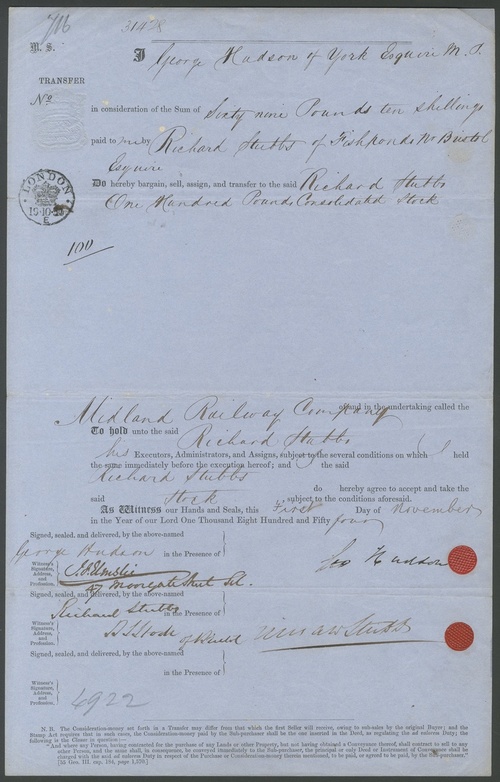 716 31428
M. S. I George Hudson of York Esquire M. P.
TRANSFER
No
in consideration of the Sum of Sixty nine Pounds ten shillings
paid to me by Richard Stubbs of Fishponds Nr Bristol
Esquire
Do hereby bargain, sell, assign, and transfer to the said Richard Stubbs
One Hundred Pounds Consolidated Stock
LONDON
E
100
of and in the undertaking called the
Midland Railway Company
To hold unto the said Richard Stubbs
his Executors, Administrators, and Assigns, subject to the several conditions on which I held
the same immediately before the execution hereof; and I the said
Richard Stubbs
do hereby agree to accept and take the
said Stock, subject to the conditions aforesaid.
As Witness our Hands and Seals, this First Day of November
in the Year of our Lord One Thousand Eight Hundred and Fifty four
Signed, sealed, and delivered, by the above-named
George Hudson in the Presence of Geo Hudson
Witness's Signature, Address, and Profession.
47 Moorgate Street
Signed, sealed, and delivered, by the above-named
Richard Stubbs in the Presence of
Witness's Signature, Address, and Profession.
Stubbs
Signed, sealed, and delivered, by the above-named
in the Presence of
Witness's Signature, Address, and Profession.
4922
N. B. The Consideration-money set forth in a Transfer may differ from that which the first Seller will receive, owing to sub-sales by the original Buyer; and the
Stamp Act requires that in such cases, the Consideration-money paid by the Sub-purchaser shall be the one inserted in the Deed, as regulating the ad valorem Duty; the
following is the Clause in question:—
"And where any Person, having contracted for the purchase of any Lands or other Property, but not having obtained a Conveyance thereof, shall contract to sell to any
other Person, and the same shall, in consequence, be conveyed immediately to the Sub-purchaser, the principal or only Deed or Instrument of Conveyance shall be
charged with the said ad valorem Duty in respect of the Purchase or Consideration-money therein mentioned, to be paid, or agreed to be paid, by the Sub-purchaser."
[55 Geo. III. cap. 184,